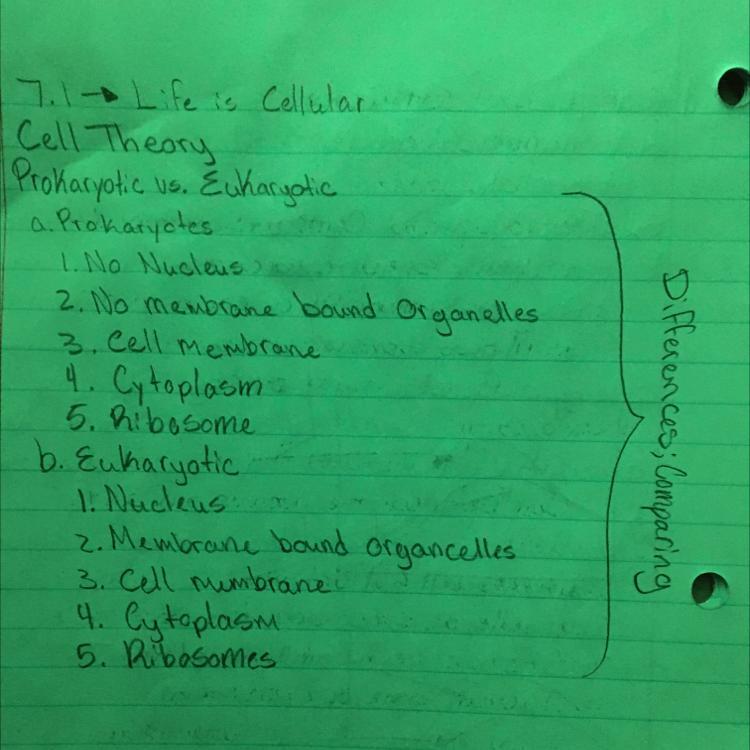 7.1 → Life is Cellular
Cell Theory
Prokaryotic vs. Eukaryotic
a. Prokaryotes
1. No Nucleus
2. No membrane bound Organelles
3. Cell Membrane
4. Cytoplasm
5. Ribosome
b. Eukaryotic
1. Nucleus
2. Membrane bound organcelles
3. Cell mumbrane
4. Cytoplasm
5. Ribosomes
Differences; Comparing